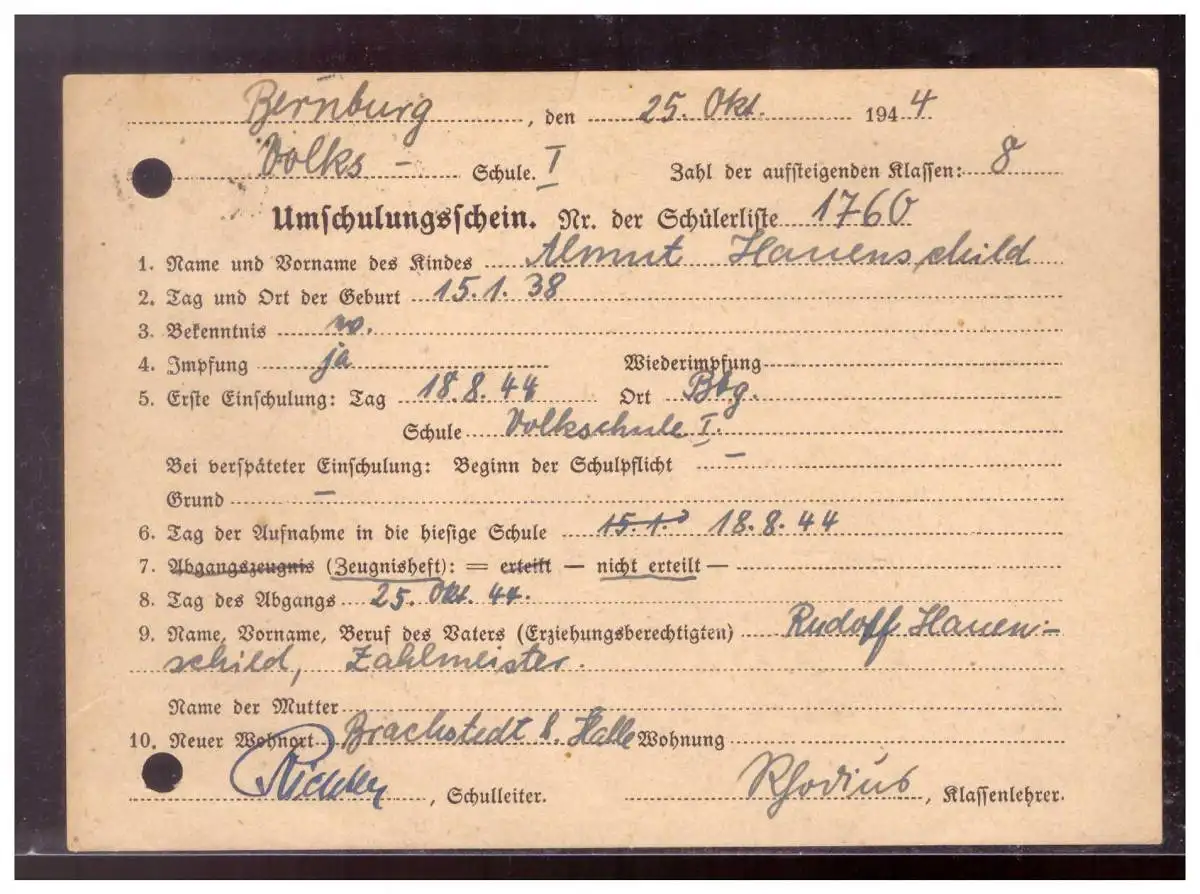 Bernburg, den 25. Okt. 1944
Volks - Schule. I Zahl der aufsteigenden Klassen: 8
Umschulungsschein. Nr. der Schülerliste 1760
1. Name und Vorname des Kindes Almut Hauenschild
2. Tag und Ort der Geburt 15.1.38
3. Bekenntnis
4. Impfung ja Wiederimpfung
5. Erste Einschulung: Tag 18.8.44 Ort Bbg.
Schule Volkschule I.
Bei verspäteter Einschulung: Beginn der Schulpflicht –
Grund –
6. Tag der Aufnahme in die hiesige Schule 15.1.3 18.8.44
7. Abgangszeugnis (Zeugnisheft): = erteilt — nicht erteilt —
8. Tag des Abgangs 25. Okt. 44.
9. Name, Vorname, Beruf des Vaters (Erziehungsberechtigten) Rudolf Hauen-
schild, Zahlmeister.
Name der Mutter
10. Neuer Wohnort Brachstedt b. Halle Wohnung
Richter, Schulleiter. Rhodius, Klassenlehrer.